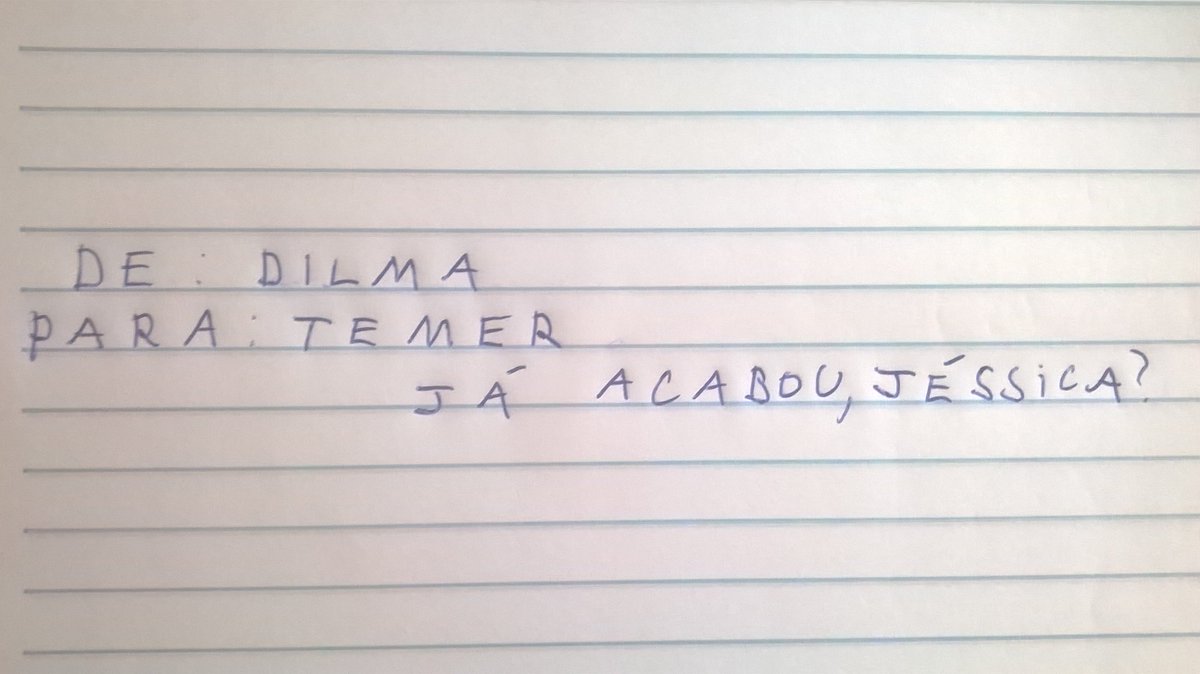 DE: DILMA
PARA: TEMER
JÁ ACABOU, JÉSSICA?